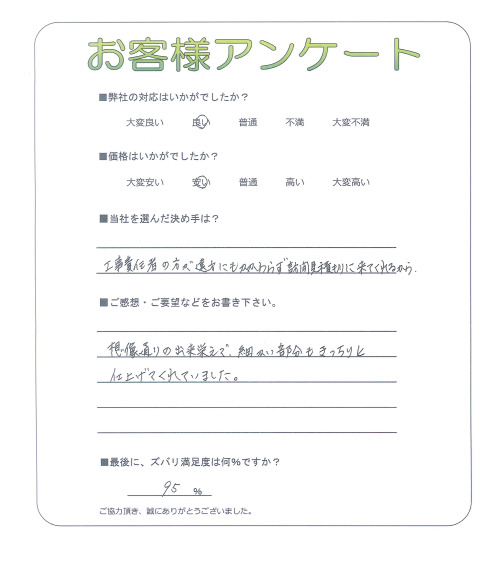 お客様アンケート
■弊社の対応はいかがでしたか？
大変良い 良い 普通 不満 大変不満
■価格はいかがでしたか？
大変安い 安い 普通 高い 大変高い
■当社を選んだ決め手は？
工事責任者の方が遠方にもかかわらず訪問見積りに来てくれるから.
■ご感想・ご要望などをお書き下さい。
想像通りの出来栄えで、細かい部分もきっちりと
仕上げてくれていました。
■最後に、ズバリ満足度は何%ですか？
95 %
ご協力頂き、誠にありがとうございました。